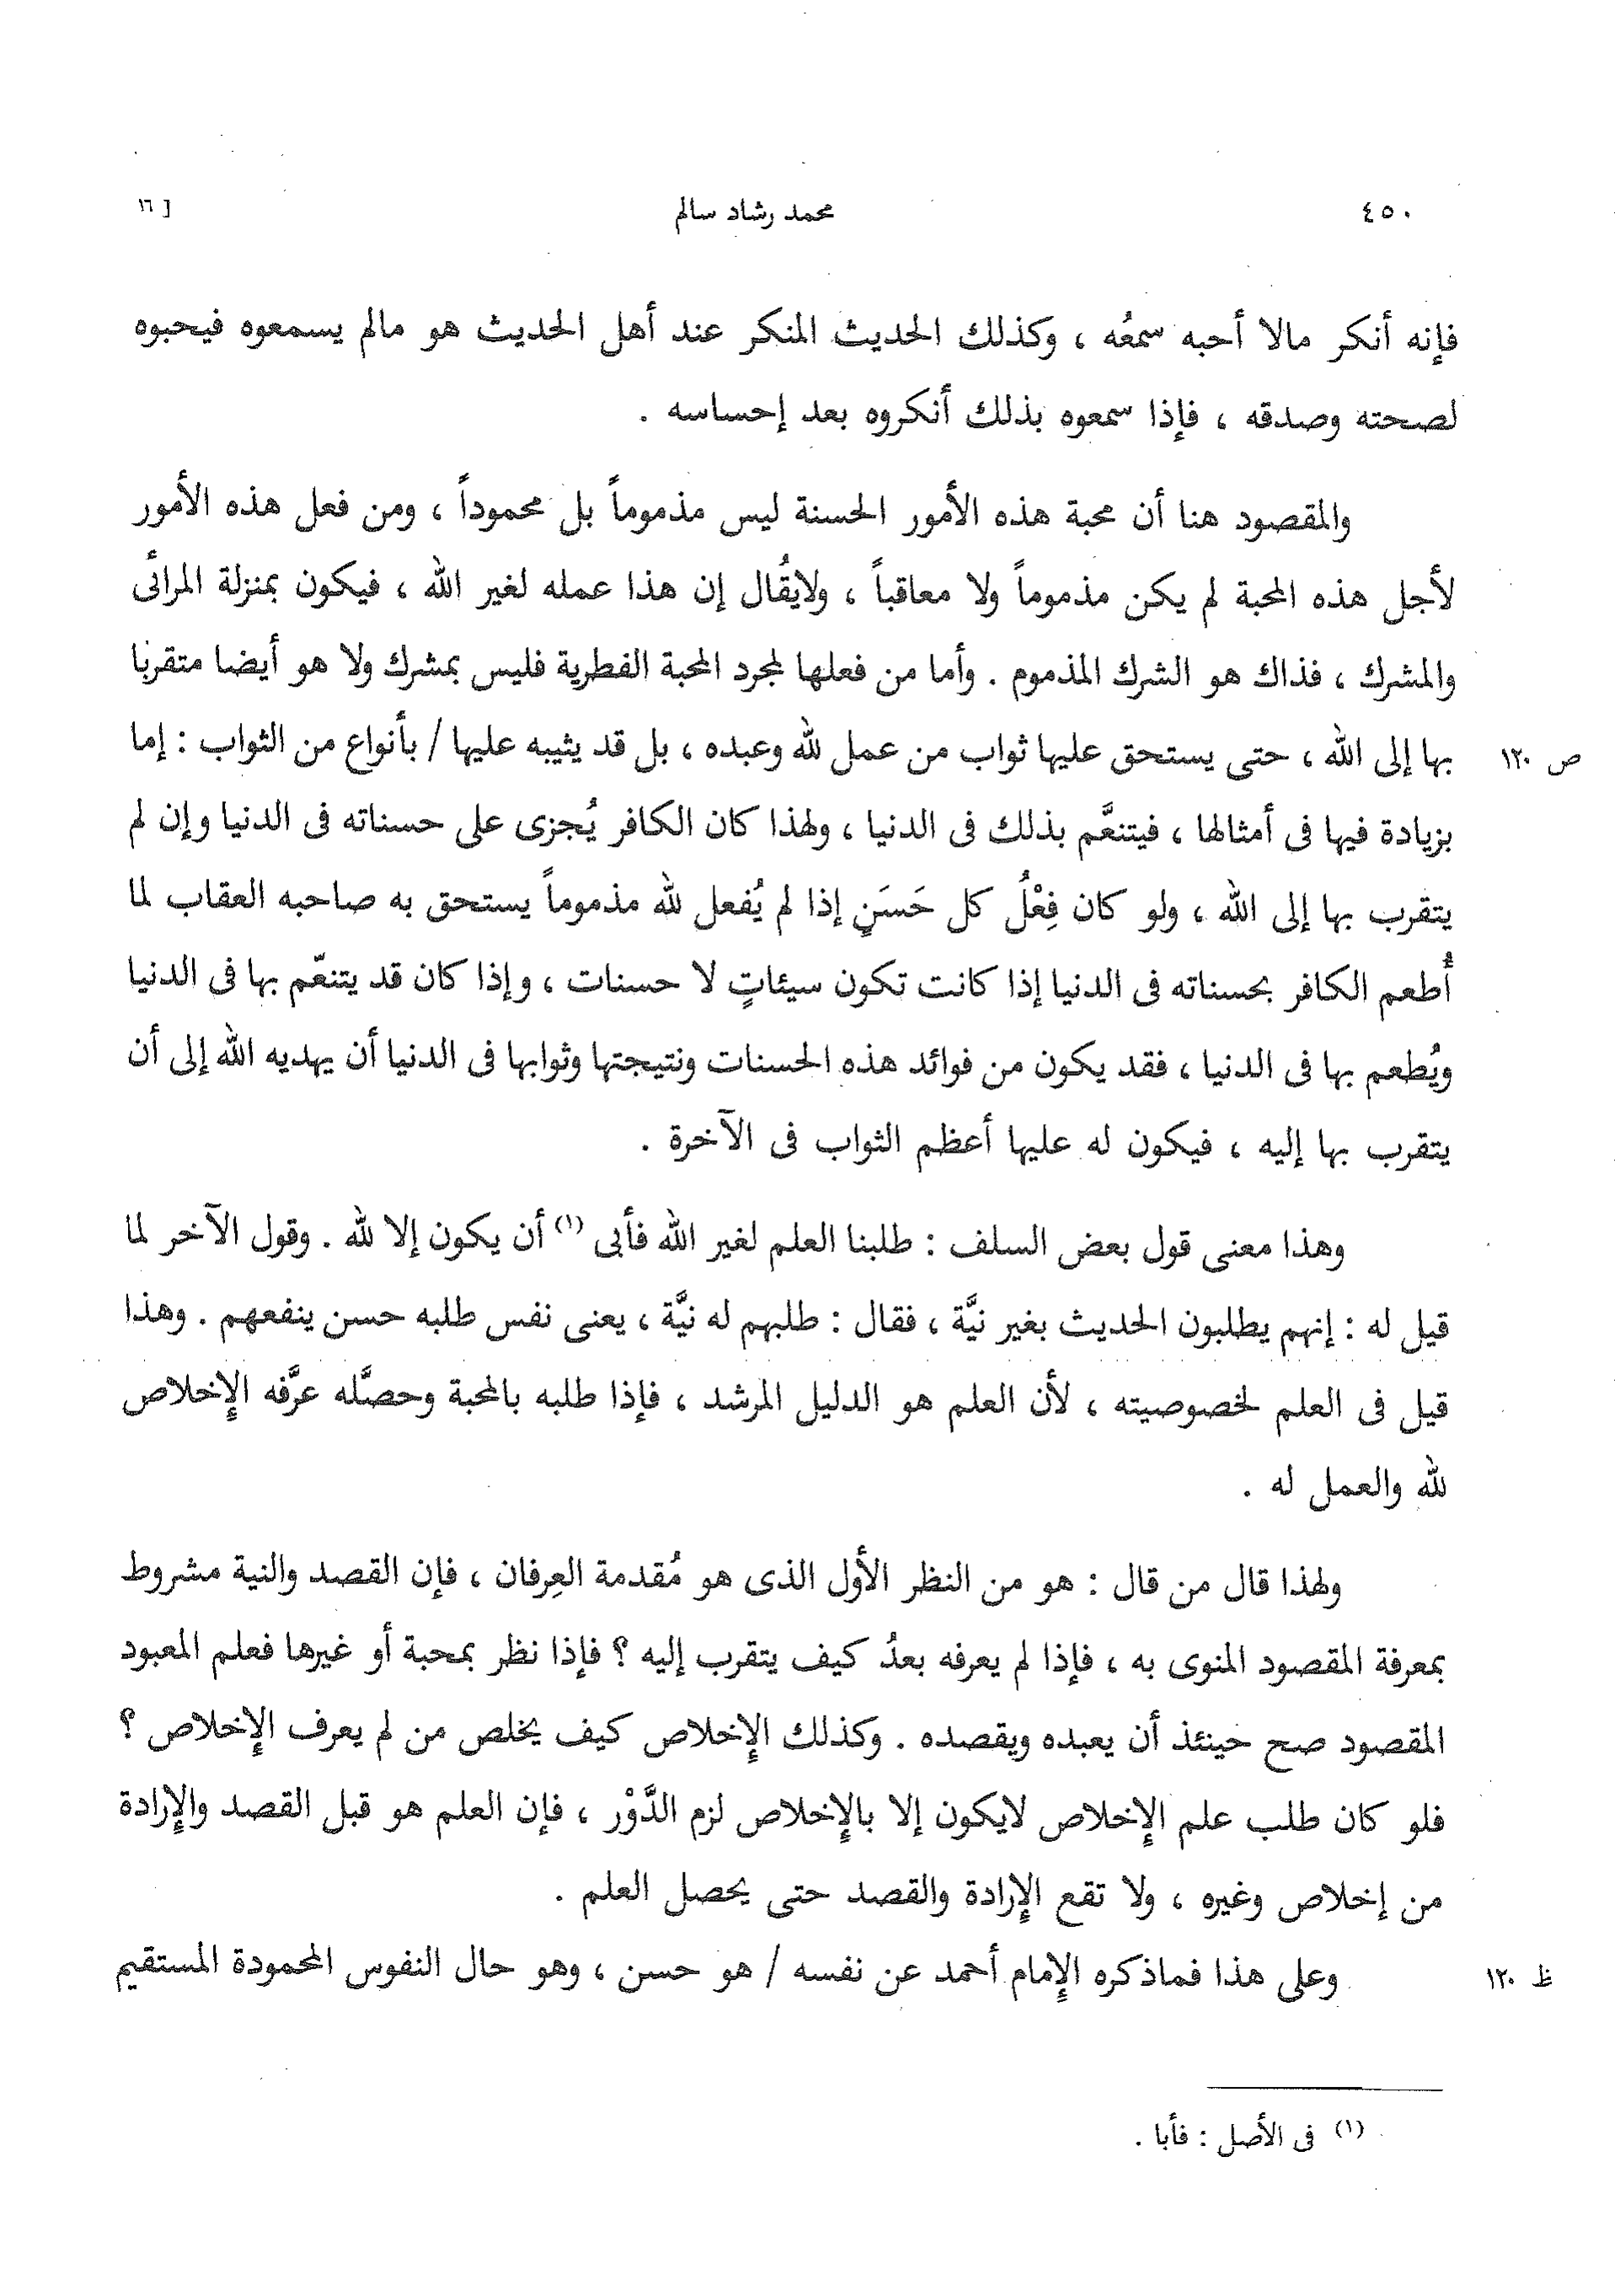 ٤٥٠ محمد رشاد سالم [ ١٦
فإنه أنكر مالا أحبه سمعُه ، وكذلك الحديث المنكر عند أهل الحديث هو مالم يسمعوه فيحبوه
لصحته وصدقه ، فإذا سمعوه بذلك أنكروه بعد إحساسه .
والمقصود هنا أن محبة هذه الأمور الحسنة ليس مذموماً بل محموداً ، ومن فعل هذه الأمور
لأجل هذه المحبة لم يكن مذموماً ولا معاقباً ، ولايُقال إن هذا عمله لغير الله ، فيكون بمنزلة المرائى
والمشرك ، فذاك هو الشرك المذموم . وأما من فعلها لمجرد المحبة الفطرية فليس بمشرك ولا هو أيضا متقربا
بها إلى الله ، حتى يستحق عليها ثواب من عمل لله وعبده ، بل قد يثيبه عليها / بأنواع من الثواب : إما ص ١٢٠
بزيادة فيها فى أمثالها ، فيتنعَّم بذلك فى الدنيا ، ولهذا كان الكافر يُجزى على حسناته فى الدنيا وإن لم
يتقرب بها إلى الله ، ولو كان فِعْلُ كل حَسَنٍ إذا لم يُفعل لله مذموماً يستحق به صاحبه العقاب لما
أُطعم الكافر بحسناته فى الدنيا إذا كانت تكون سيئاتٍ لا حسنات ، وإذا كان قد يتنعّم بها فى الدنيا
ويُطعم بها فى الدنيا ، فقد يكون من فوائد هذه الحسنات ونتيجتها وثوابها فى الدنيا أن يهديه الله إلى أن
يتقرب بها إليه ، فيكون له عليها أعظم الثواب فى الآخرة .
وهذا معنى قول بعض السلف : طلبنا العلم لغير الله فأبى (١) أن يكون إلا لله . وقول الآخر لما
قيل له : إنهم يطلبون الحديث بغير نيَّة ، فقال : طلبهم له نيَّة ، يعنى نفس طلبه حسن ينفعهم . وهذا
قيل فى العلم لخصوصيته ، لأن العلم هو الدليل المرشد ، فإذا طلبه بالمحبة وحصَّله عرَّفه الإخلاص
لله والعمل له .
ولهذا قال من قال : هو من النظر الأول الذى هو مُقدمة العِرفان ، فإن القصد والنية مشروط
بمعرفة المقصود المنوى به ، فإذا لم يعرفه بعدُ كيف يتقرب إليه ؟ فإذا نظر بمحبة أو غيرها فعلم المعبود
المقصود صح حينئذ أن يعبده ويقصده . وكذلك الإخلاص كيف يخلص من لم يعرف الإخلاص ؟
فلو كان طلب علم الإخلاص لايكون إلا بالإخلاص لزم الدَّوْر ، فإن العلم هو قبل القصد والإرادة
من إخلاص وغيره ، ولا تقع الإرادة والقصد حتى يحصل العلم .
وعلى هذا فماذكره الإمام أحمد عن نفسه / هو حسن ، وهو حال النفوس المحمودة المستقيم ظ ١٢٠
(١) فى الأصل : فأبا .